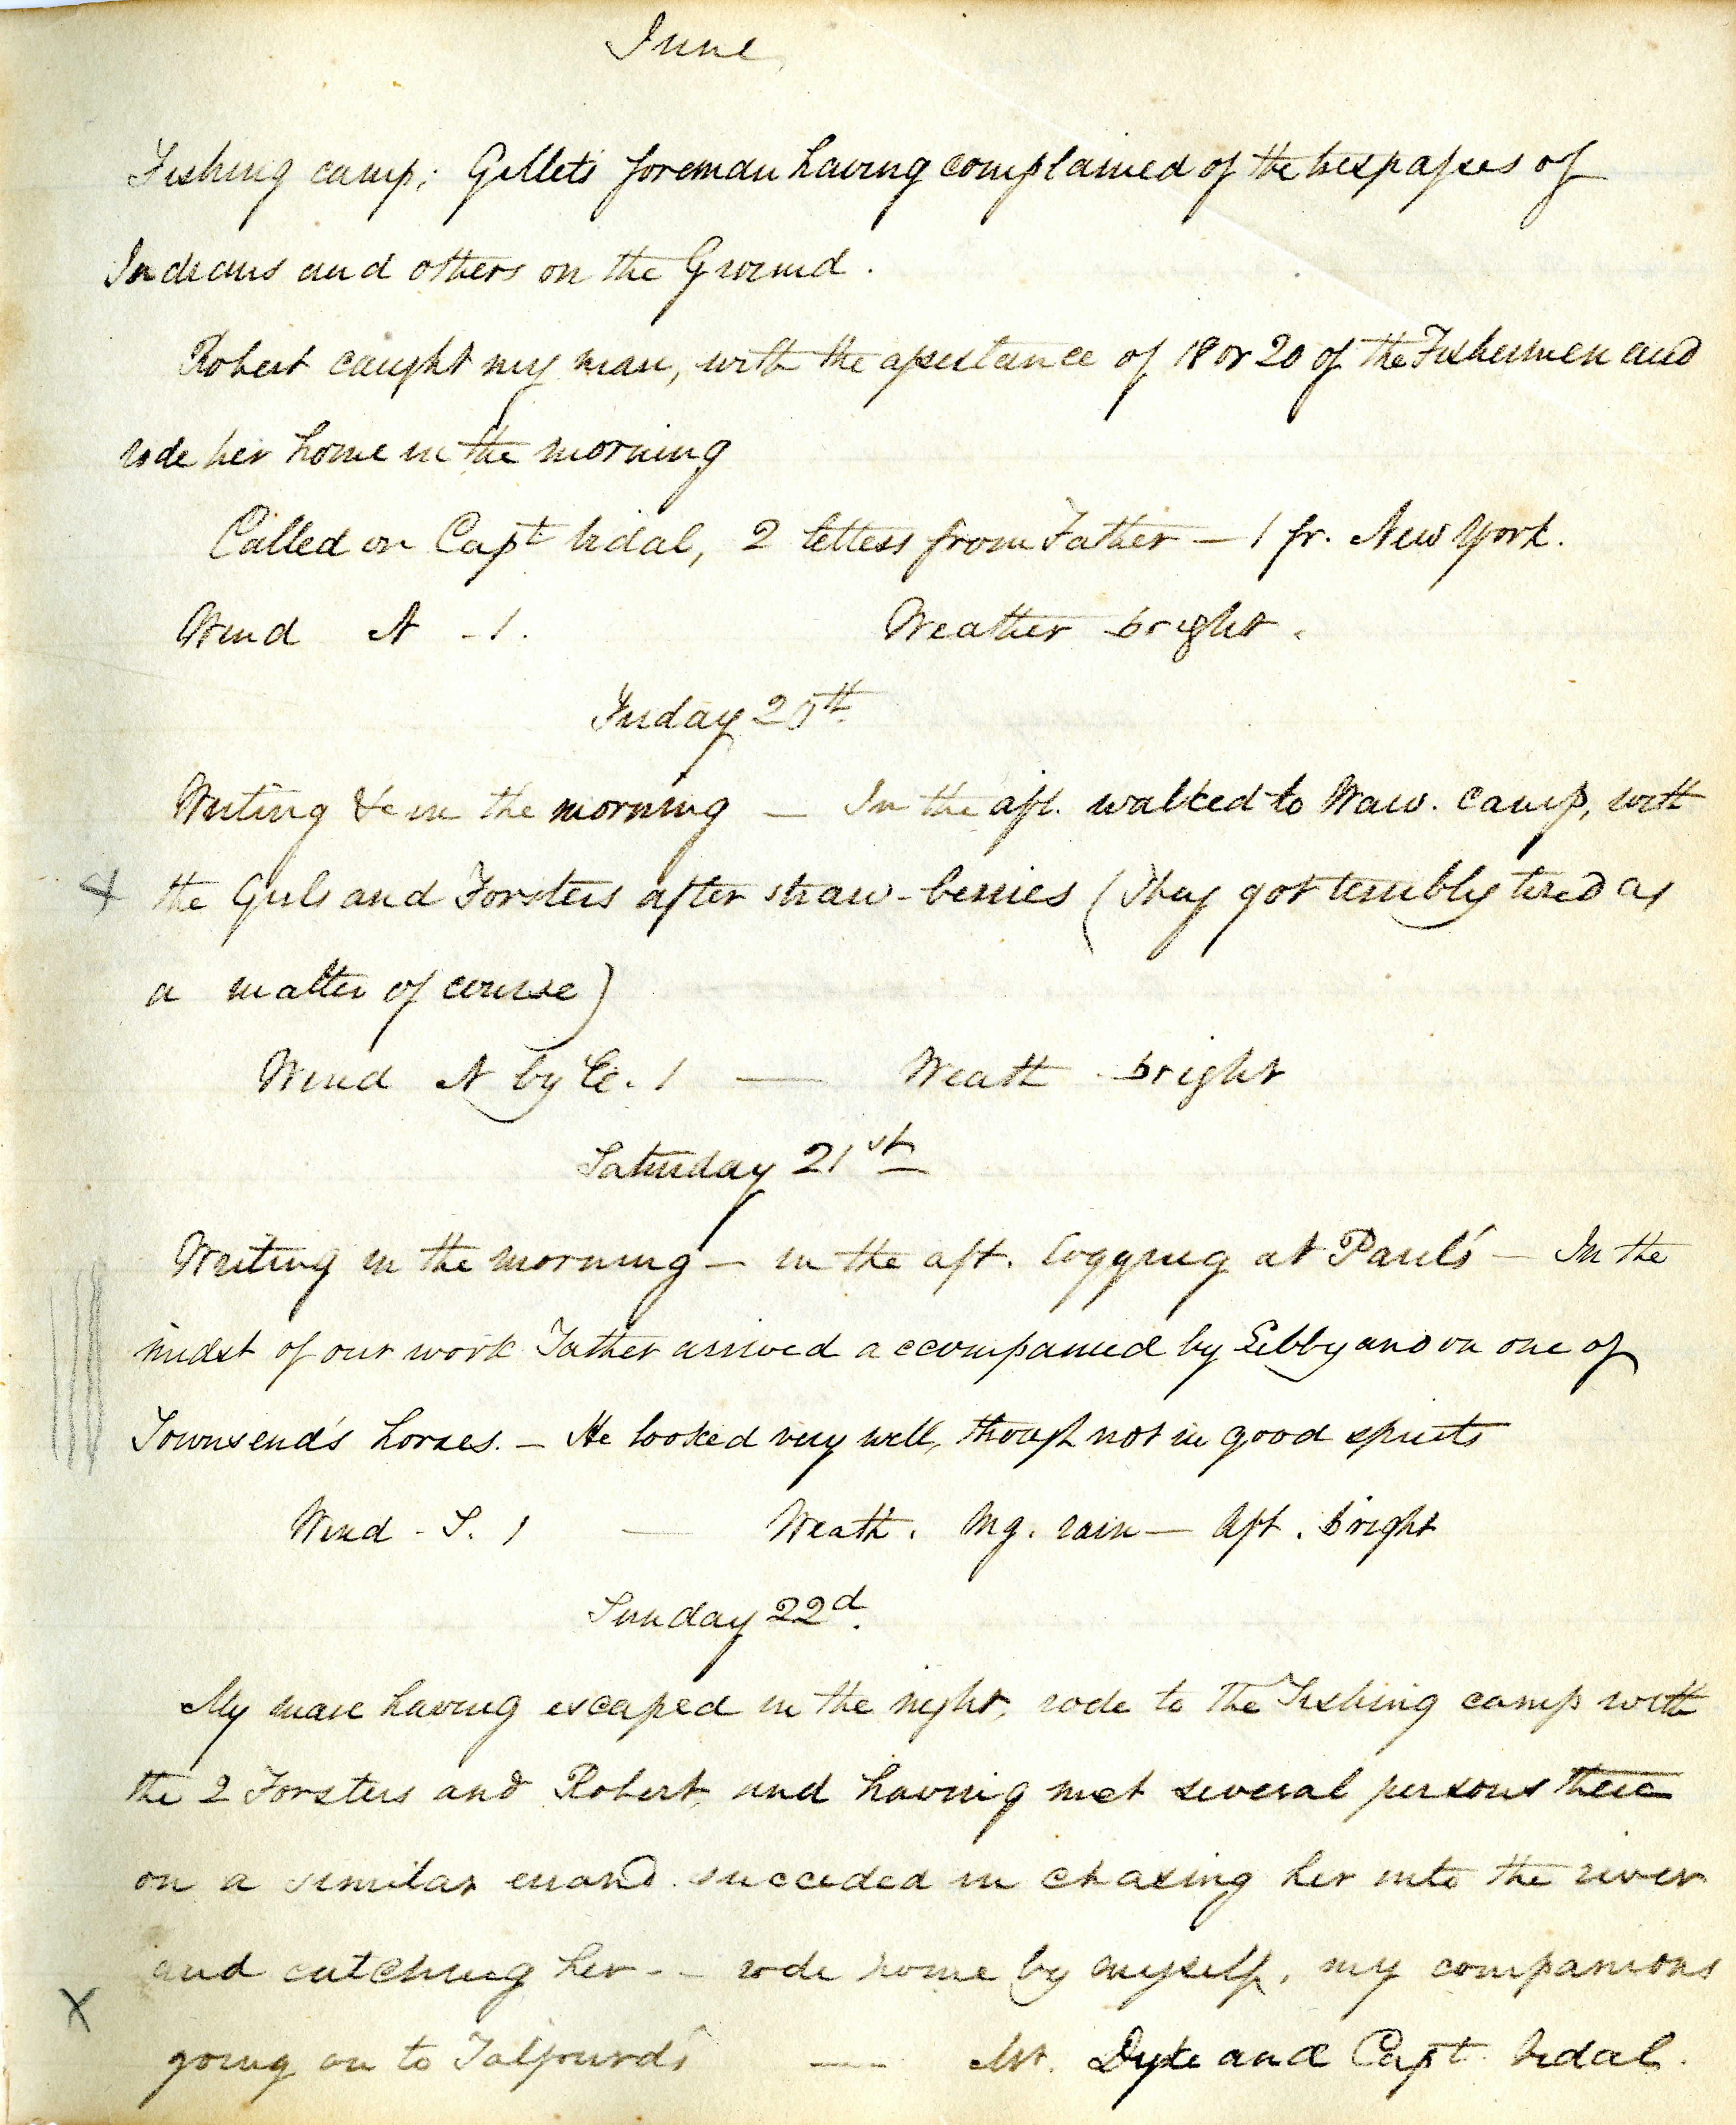 June
Fishing camp; Gillets foreman having complained of the trespasses of
Indians and others on the Ground.
Robert caught my mare, with the assistance of 18 or 20 of the Fishermen and
rode her home in the morning
Called on Capt Vidal, 2 letters from Father – 1 fr. New York.
Wind N - 1. Weather bright.
Friday 20th
Writing &c in the morning – In the aft. walked to Waw. camp, with
the Girls and Forsters after straw-berries (They got terribly tired as
a matter of course)
Wind N by E. 1 — Weath bright
Saturday 21st
Writing in the morning – in the aft. logging at Paul's – In the
midst of our work Father arrived accompanied by Libby and on one of
Townsend's horses. – He looked very well, though not in good spirits
Wind - S. 1 — Weath. Mg. rain – Aft. bright
Sunday 22d.
My mare having escaped in the night, rode to the Fishing camp with
the 2 Forsters and Robert, and having met several persons there
on a similar errand. succeded in chasing her into the river
and catching her - – rode home by myself, my companions
going on to Talfourd's — Mr. Dyke and Capt. Vidal.